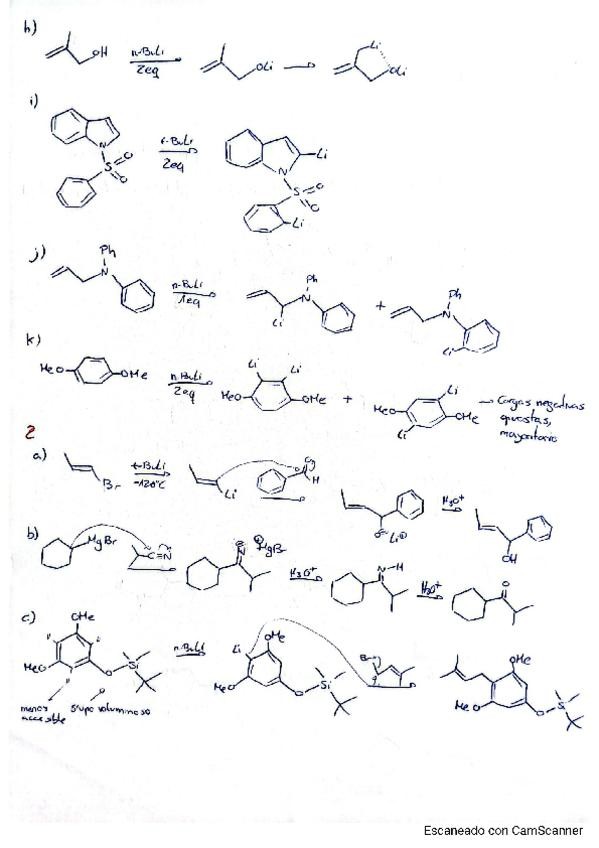 h) OH n-BuLi 2eq OLi Li OLi
i) N S O O t-BuLi 2eq Li N S O O Li
j) Ph N n-BuLi 1eq Ph N Li + Ph N Li
k) MeO OMe n-BuLi 2eq Li Li MeO OMe + MeO Li OMe Li → Cargas negativas
opuestas,
mayoritario
2
a) Br t-BuLi -120ºC Li O H O⊖ Li⊕ H3O+ OH
b) MgBr C≡N N⊖ ⊕MgBr H3O+ N H H3O+ O
c) OMe H H MeO H O Si n-BuLi Li OMe MeO O Si Br OMe MeO O Si
menos accesible
grupo voluminoso
Escaneado con CamScanner